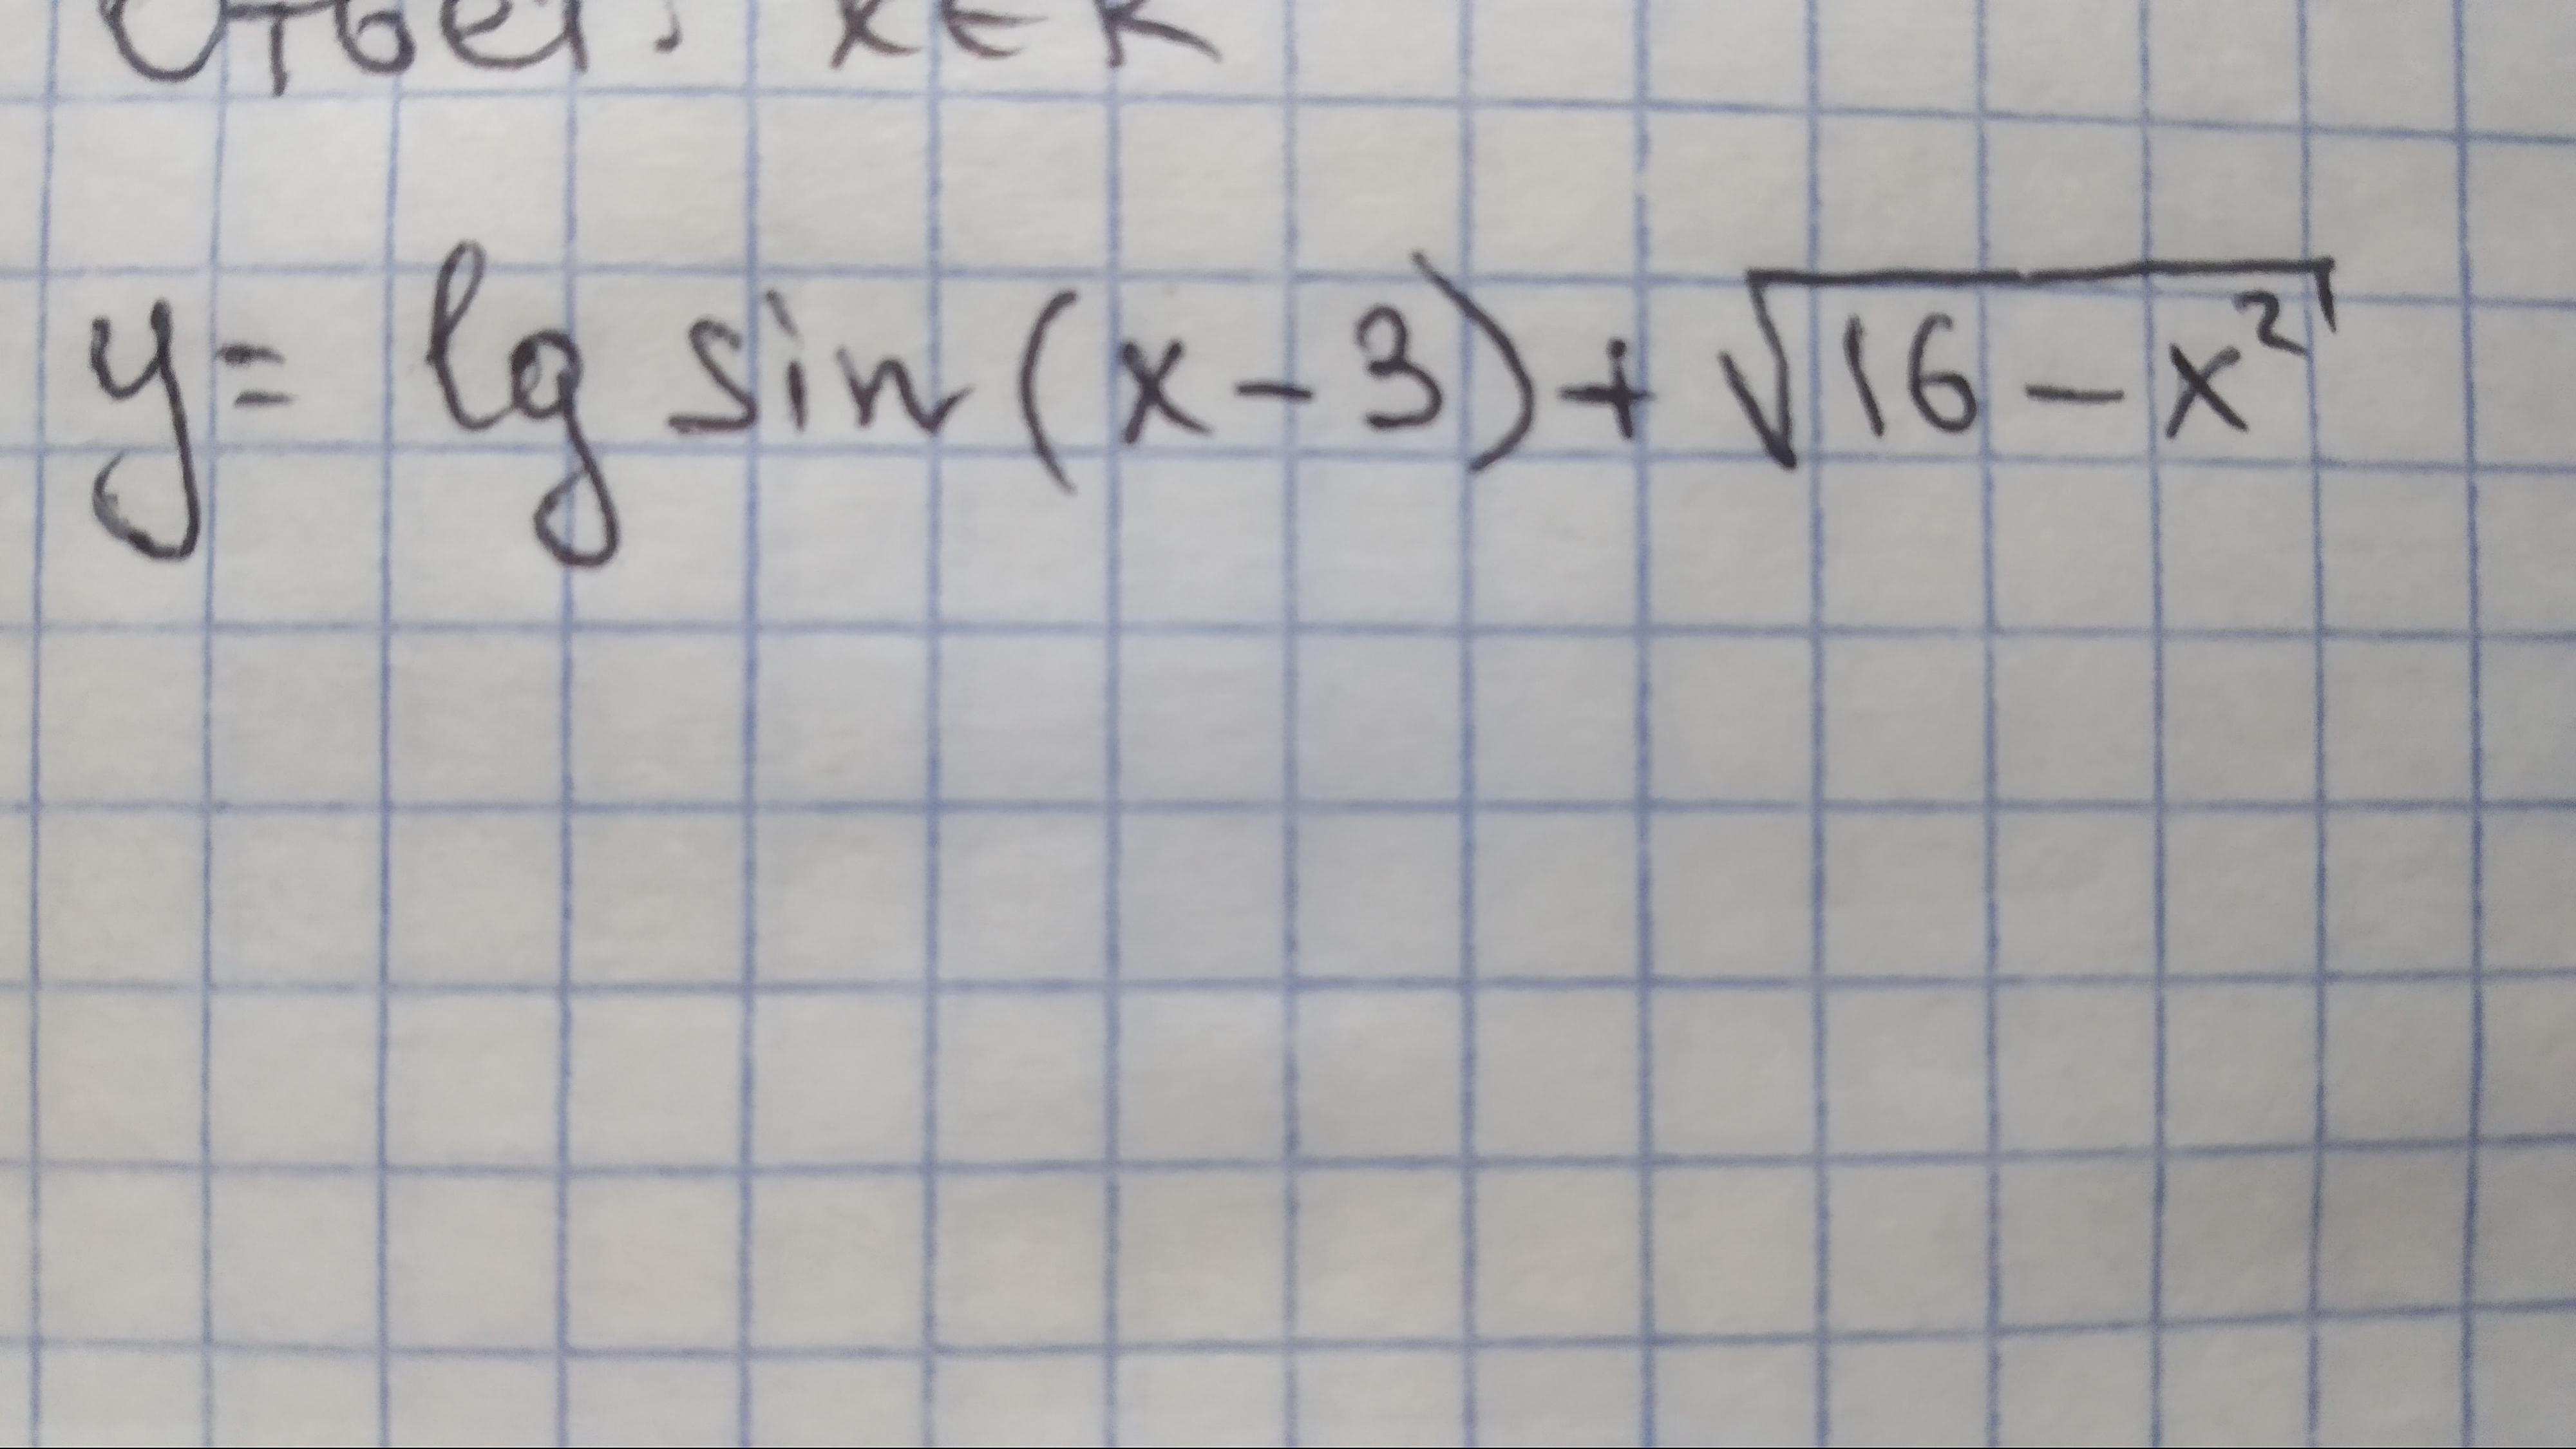 Ответ: x ∈ R
y = lg sin (x - 3) + √(16 - x²)